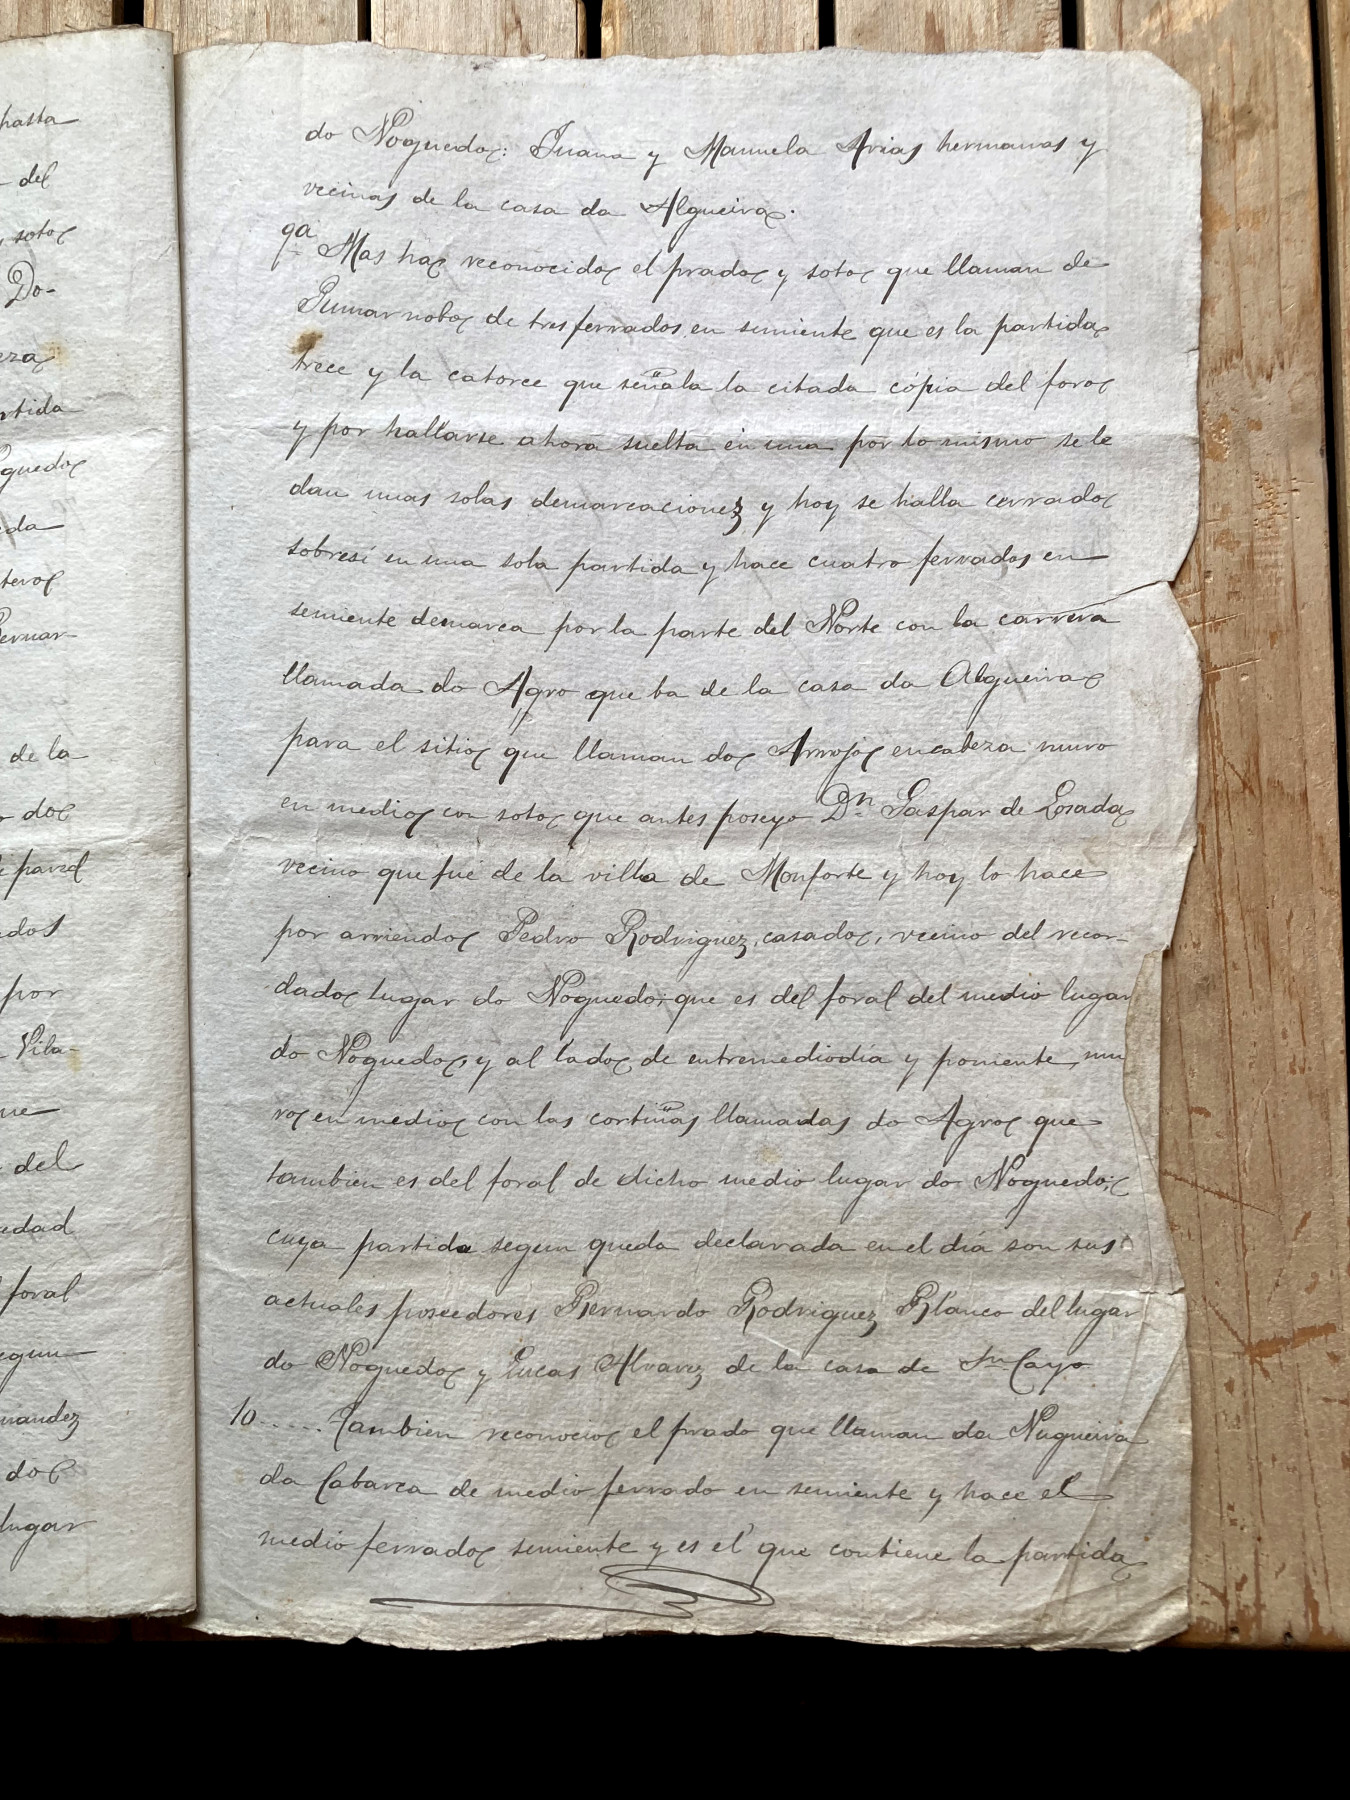 do Noguedo: Juana y Manuela Arias hermanas y
vecinas de la casa da Algueira.
9a Mas ha reconocido el prado y soto que llaman de
Pumarnobo de tres ferrados en semiente que es la partida
trece y la catorce que señala la citada cópia del foro
y por hallarse ahora suelta en una por lo mismo se le
dan unas solas demarcaciones y hoy se halla cerrado
sobresí en una sola partida y hace cuatro ferrados en
semiente demarca por la parte del Norte con la carrera
llamada do Agro que ba de la casa da Algueira
para el sitio que llaman do Arrojo encabeza muro
en medio con soto que antes poseyo Dn Gaspar de Losada
vecino que fué de la villa de Monforte y hoy lo hace
por arriendo Pedro Rodriguez, casado, vecino del recor-
dado lugar do Noguedo; que es del foral del medio lugar
do Noguedo, y al lado de entremediodía y poniente mu
ro en medio con las cortiñas llamadas do Agro que
tambien es del foral de dicho medio lugar do Noguedo;
cuya partida segun queda declarada en el día son sus
actuales poseedores Bernardo Rodriguez Blanco del lugar
do Noguedo y Lucas Alvarez de la casa de Sn Cayo
10.... Tambien reconocio el prado que llaman da Nugueira
da Cabarca de medio ferrado en semiente y hace el
medio ferrado semiente y es el que contiene la partida
pasta
del
soto
Do-
eza
rtida
guedo
eda
tero
Bernar-
de la
do
pared
edos
por
Vila-
ue
del
edad
foral
egun
nandez
do
lugar